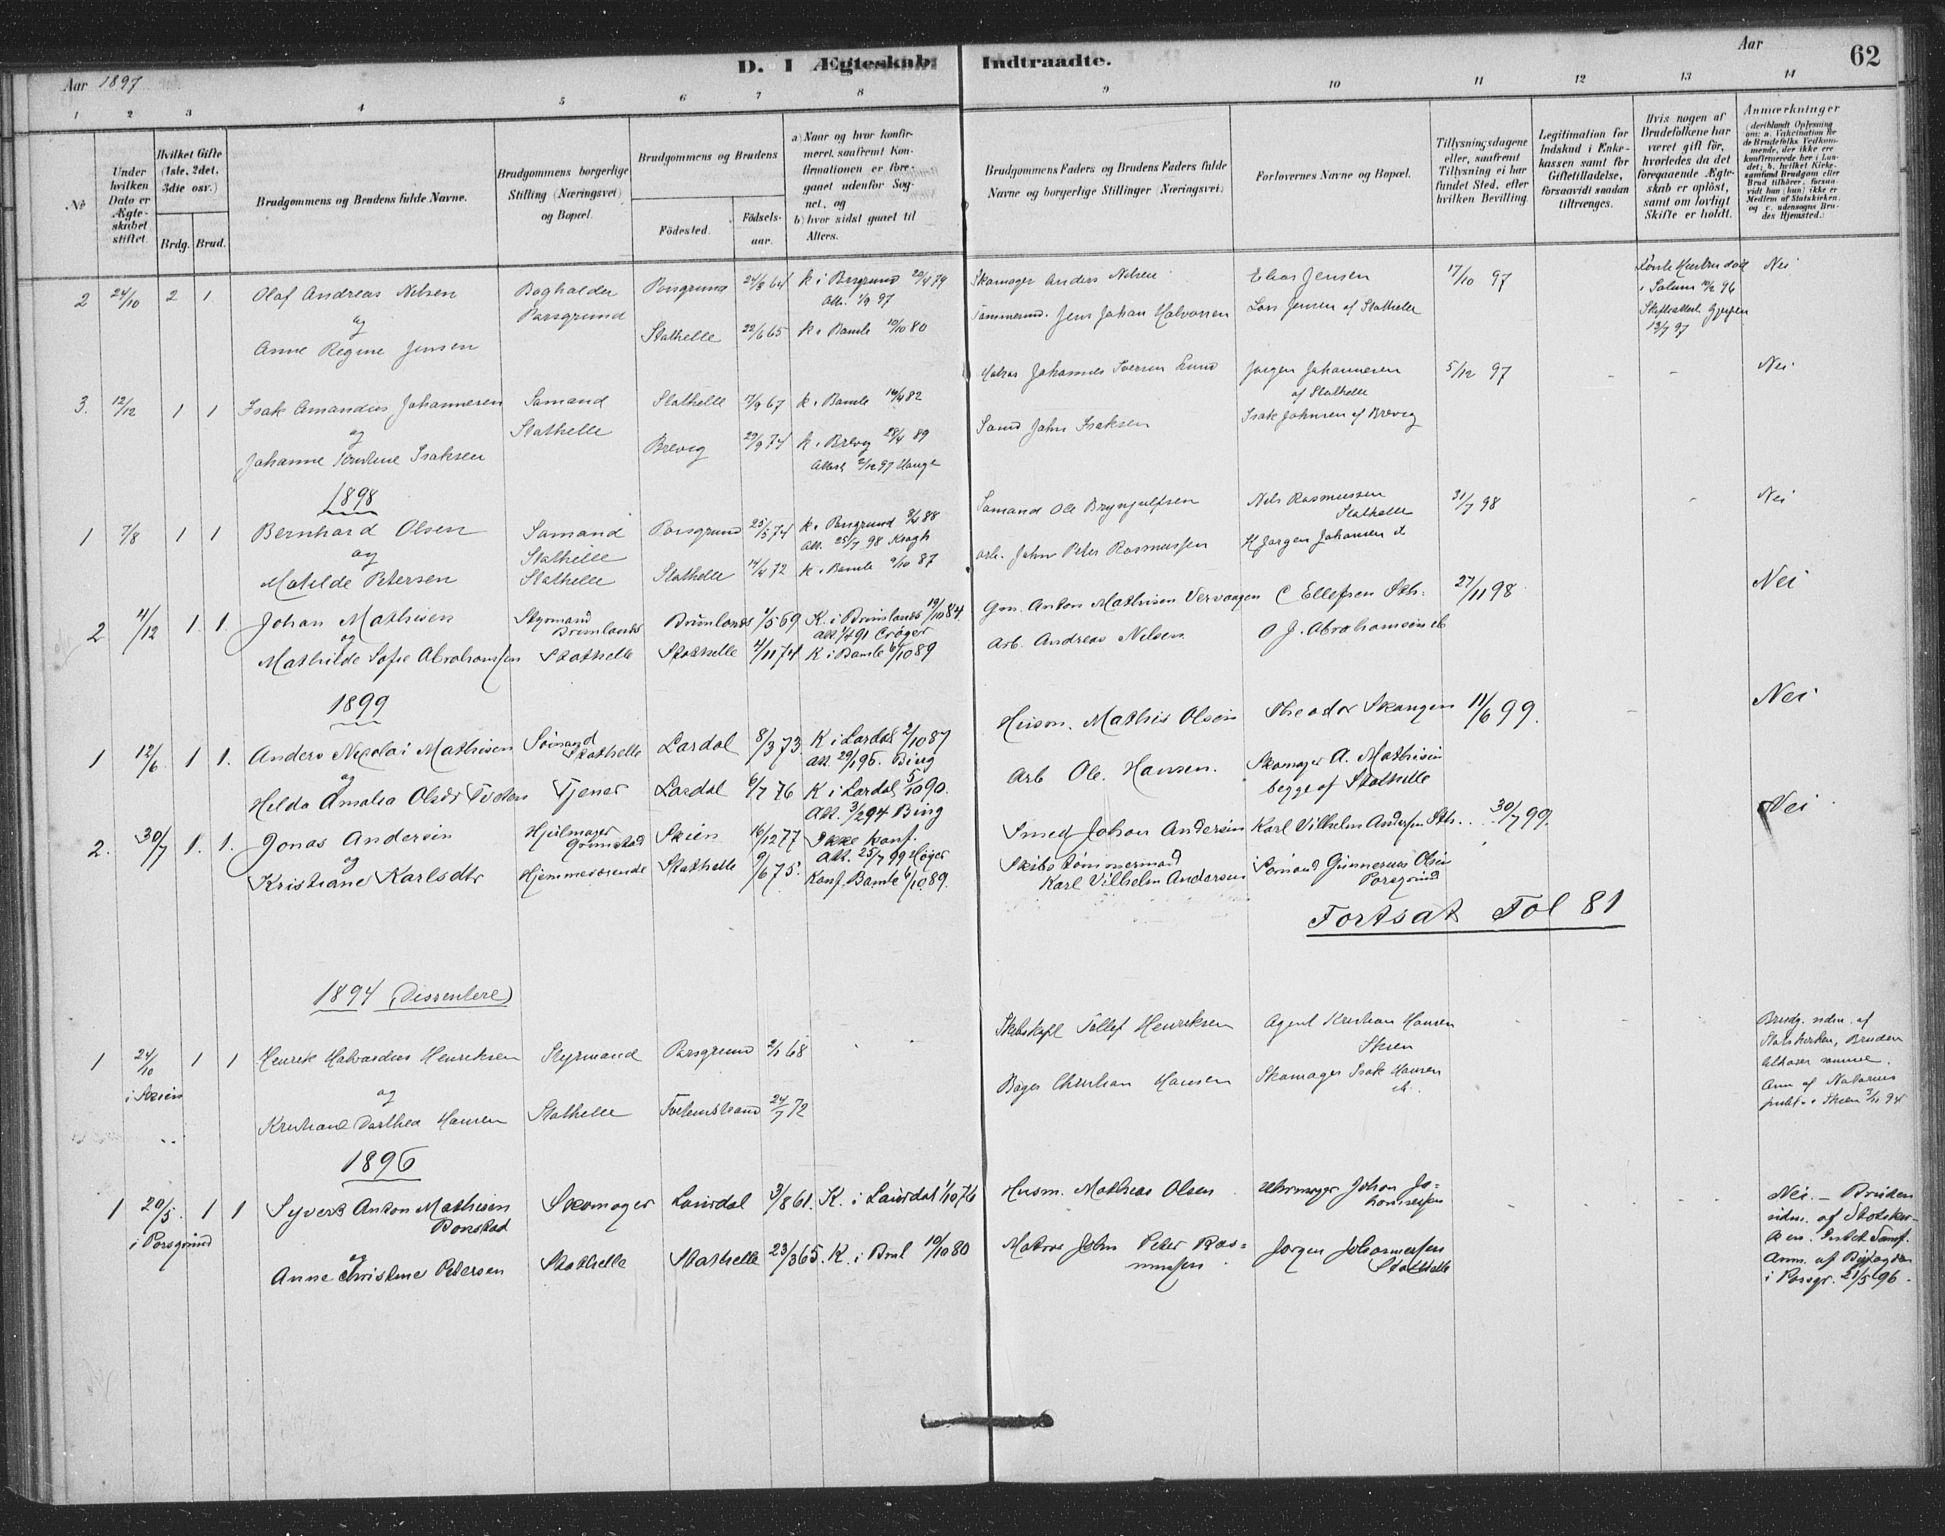 Aar 1897
D. I Ægteskab Indtraadte.
Aar
62
1 2 3 4 5 6 7 8 9 10 11 12 13 14
No
Under hvilken Dato er Ægteskabet stiftet.
Hvilket Gifte (1ste, 2det, 3die osv.)
Brdg. Brud.
Brudgommens og Brudens fulde Navne.
Brudgommens borgerlige Stilling (Næringsvei) og Bopæl.
Brudgommens og Brudens
Fødested.
Fødselsaar.
a) Naar og hvor konfirmeret, saafremt Konfirmationen er foregaaet udenfor Sognet, og
b) hvor sidst gaaet til Alters.
Brudgommens Faders og Brudens Faders fulde Navne og borgerlige Stillinger (Næringsvei)
Forlovernes Navne og Bopæl.
Tillysningsdagene eller, saafremt Tillysning ei har fundet Sted, efter hvilken Bevilling.
Legitimation for Indskud i Enkekassen samt for Giftetilladelse, forsaavidt saadan tiltrænges.
Hvis nogen af Brudefolkene har været gift før, hvorledes da det foregaaende Ægteskab er opløst, samt om lovligt Skifte er holdt.
Anmærkninger (deriblandt Oplysning om: a. Vakcination for de Brudefolks Vedkommende, der ikke ere konfirmerede her i Landet; b. hvilket Kirkesamfund Brudgom eller Brud tilhører, forsaavidt han (hun) ikke er Medlem af Statskirken, og c. udensogns Brudes Hjemsted.)
2 24/10 2 1 Olaf Andreas Nilsen Bogholder Porsgrund 24/8 64 k i Porsgrund 20/4 79 Skomager Anders Nilsen Elias Jensen 17/10 97 Nei
og Porsgrund Alt. 1/9 97 i Solum 10/2 96
Anne Regine Jensen Stathelle 22/6 65 k. Bamle 10/10 80 Tømmermd. Jens Johan Halvorsen Lars Jensen af Stathelle Skifteattest Gjerpen 13/7 97
3. 12/12 1 1 Isak Amandus Johannesen Sømand Stathelle 17/9 67 k. Bamle 14/4 82 Matros Johannes Iversen Lund Jørgen Johannesen 5/12 97 - - Nei
og Stathelle af Stathelle
Johanne Tomine Isaksen Brevig 29/9 74 k. Brevig 28/4 89 Sømd John Isaksen Isak Johnsen af Brevig
Attest 2/12 97 Hauge
1898
1 7/8 1 1 Bernhard Olsen Sømand Porsgrund 25/5 74 k. Porsgrund 8/4 88 Sømand Ole Brynjulfsen Nils Rasmussen 31/7 98 - Nei
og Stathelle Alt. 25/7 98 Kragh Stathelle
Matilde Petersen Stathelle Stathelle 14/4 72 k. Bamle 9/10 87 arb. John Peter Rasmussen H Jørgen Johansen
2 4/12 1. 1. Johan Mathisen Styrmand Brunlanes 1/5 69 K. i Brunlanes 19/10 84. Gm. Anton Mathisen C Ellefsen Sth. 27/11 98. Nei
og Brunlanes att 1/4 91 Crøger
Mathilde Sofie Abrahamsen Stathelle Stathelle 4/11 74 K i Bamle 6/10 89 Arb. Andreas Nilsen O J. Abrahamsen
1899
1 12/6 1 1. Anders Nicolai Mathisen Sømand Lardal 8/3 73. K i Lardal 2/10 87 Husm. Mathis Olsen Theodor Skaugen 11/6 99. - Nei
og Stathelle att 29/1 95. Bing
Hilda Amalia Olsdr Tveten Tjener Lardal 6/7 76 K i Lardal 5/10 90. Arb Ole Hansen. Skomager A. Mathisen
Att. 3/2 94 Bing begge af Stathelle
2. 30/7 1. 1. Jonas Andersen Hjulmager Skien 16/12 77 Ikke konf. Smed Johan Andersen Karl Vilhelm Andersen Sth. 30/7 99. Nei
og Grimstad Att. 25/7 99 Høyer
Kristiane Karlsdtr Hjemmeværende Stathelle 9/6 75. Konf. Bamle 6/10 89. Skibstømmermand Sømand Gunnerius Olsen
Karl Vilhelm Andersen Porsgrund
Fortsat Fol 81
1894 (Dissentere)
1 24/10 1 1 Henrik Halvardius Henriksen Styrmand Porsgrund 2/1 68 Tellef Henriksen Agent Kristian Hansen Brudg. udm. af
i Skien og Skien Statskirken, Bruden
Kristiane Dorthea Hansen Stathelle 24/7 72 Bager Christian Hansen Skomager Isak Hansen tilhører samme.
Anm af Notarius publ. i Skien 3/11 94
1896
1 20/5. 1 1 Syvert Anton Mathisen Skomager Laurdal 3/8 61. K. i Laurdal 1/10 76 Husm. Mathias Olsen Uhrmager Johan Johannessen Nei. - Bruden
i Porsgrund Bonstad udm. af Statskirken. Intet Samf.
og Anne Christine Petersen Stathelle Stathelle 23/3 65. K. i Bml 10/10 80 Matros John Peter Rasmussen Jørgen Johannessen Anm. af Byfogden
Stathelle i Porsgr. 21/5 96.